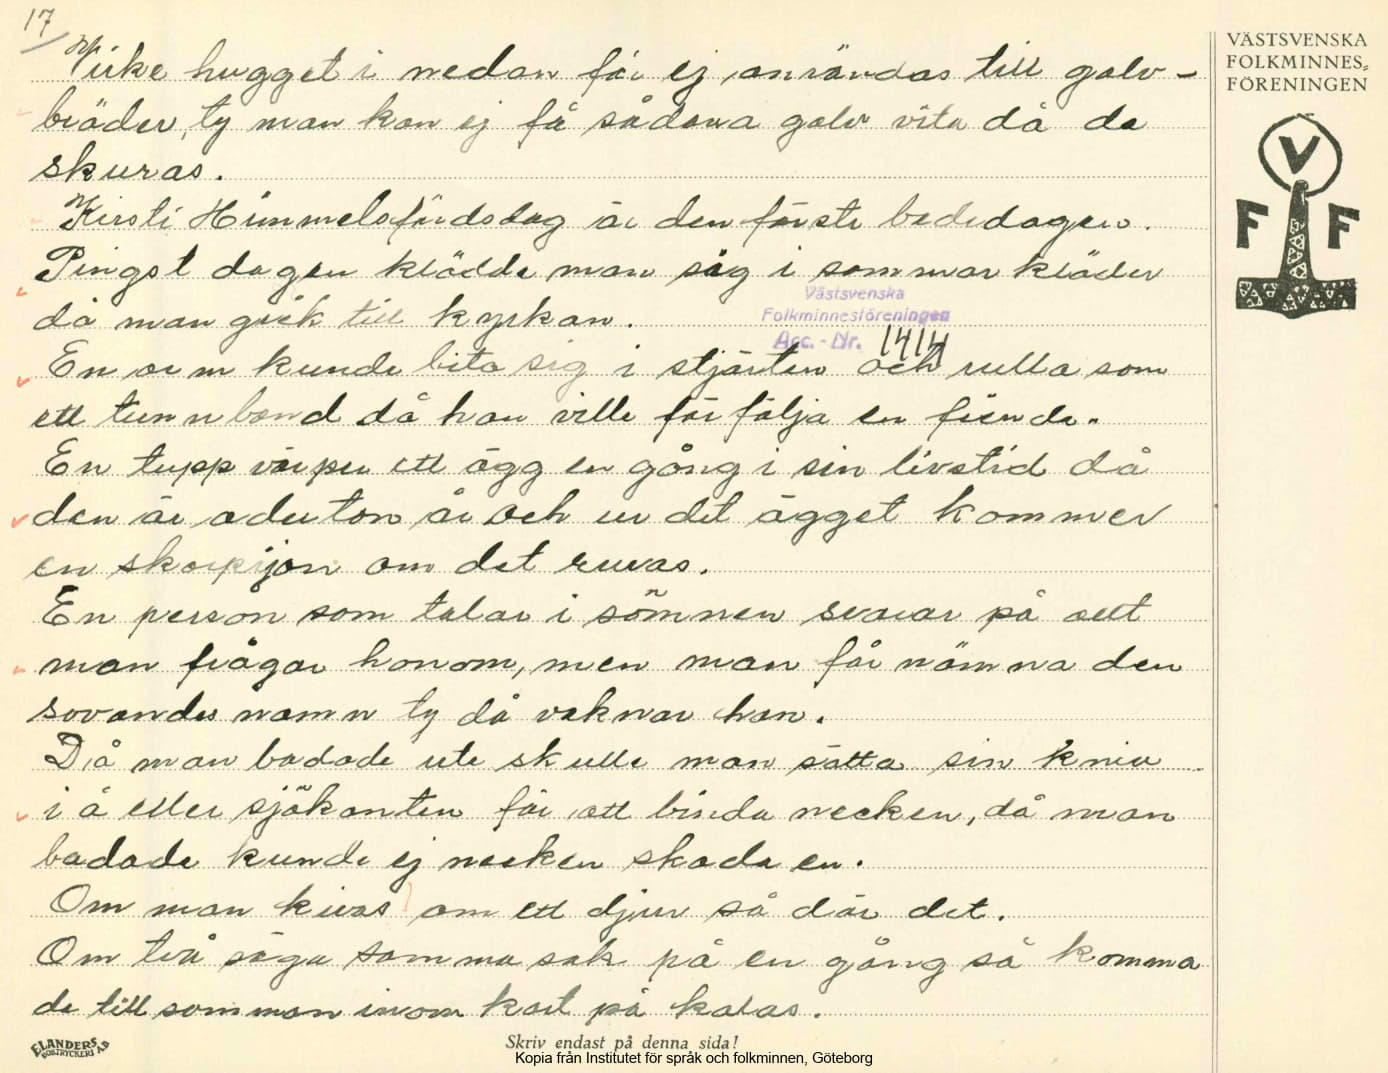 17
Virke hugget i nedan får ej användas till golv-
bräder, ty man kan ej få sådana golv vita då de
skuras.
Kirsti Himmelsfärdsdag är den förste bededagen.
Pingst dagen klädde man sig i sommar kläder
då man gick till kyrkan.
En orm kunde bita sig i stjärten och rulla som
ett tunnband då han ville förfölja en fiende.
En tupp värper ett ägg en gång i sin livstid då
den är aderton år och ur det ägget kommer
en skorpijon om det ruvas.
En person som talar i sömnen svarar på allt
man frågar honom, men man får nämna den
sovandes namn ty då vaknar han.
Då man badade ute skulle man sätta sin kniv
i å eller sjökanten för att binda necken, då man
badade kunde ej necken skada en.
Om man kivas om ett djur så dör det.
Om två säga samma sak på en gång så komma
de till samman inom kort på kalas.
VÄSTSVENSKA
FOLKMINNES-
FÖRENINGEN
V
F F
Västsvenska
Folkminnesföreningen
Acc. - Nr. 1414
ELANDERS
BOKTRYCKERI AB
Skriv endast på denna sida!
Kopia från Institutet för språk och folkminnen, Göteborg